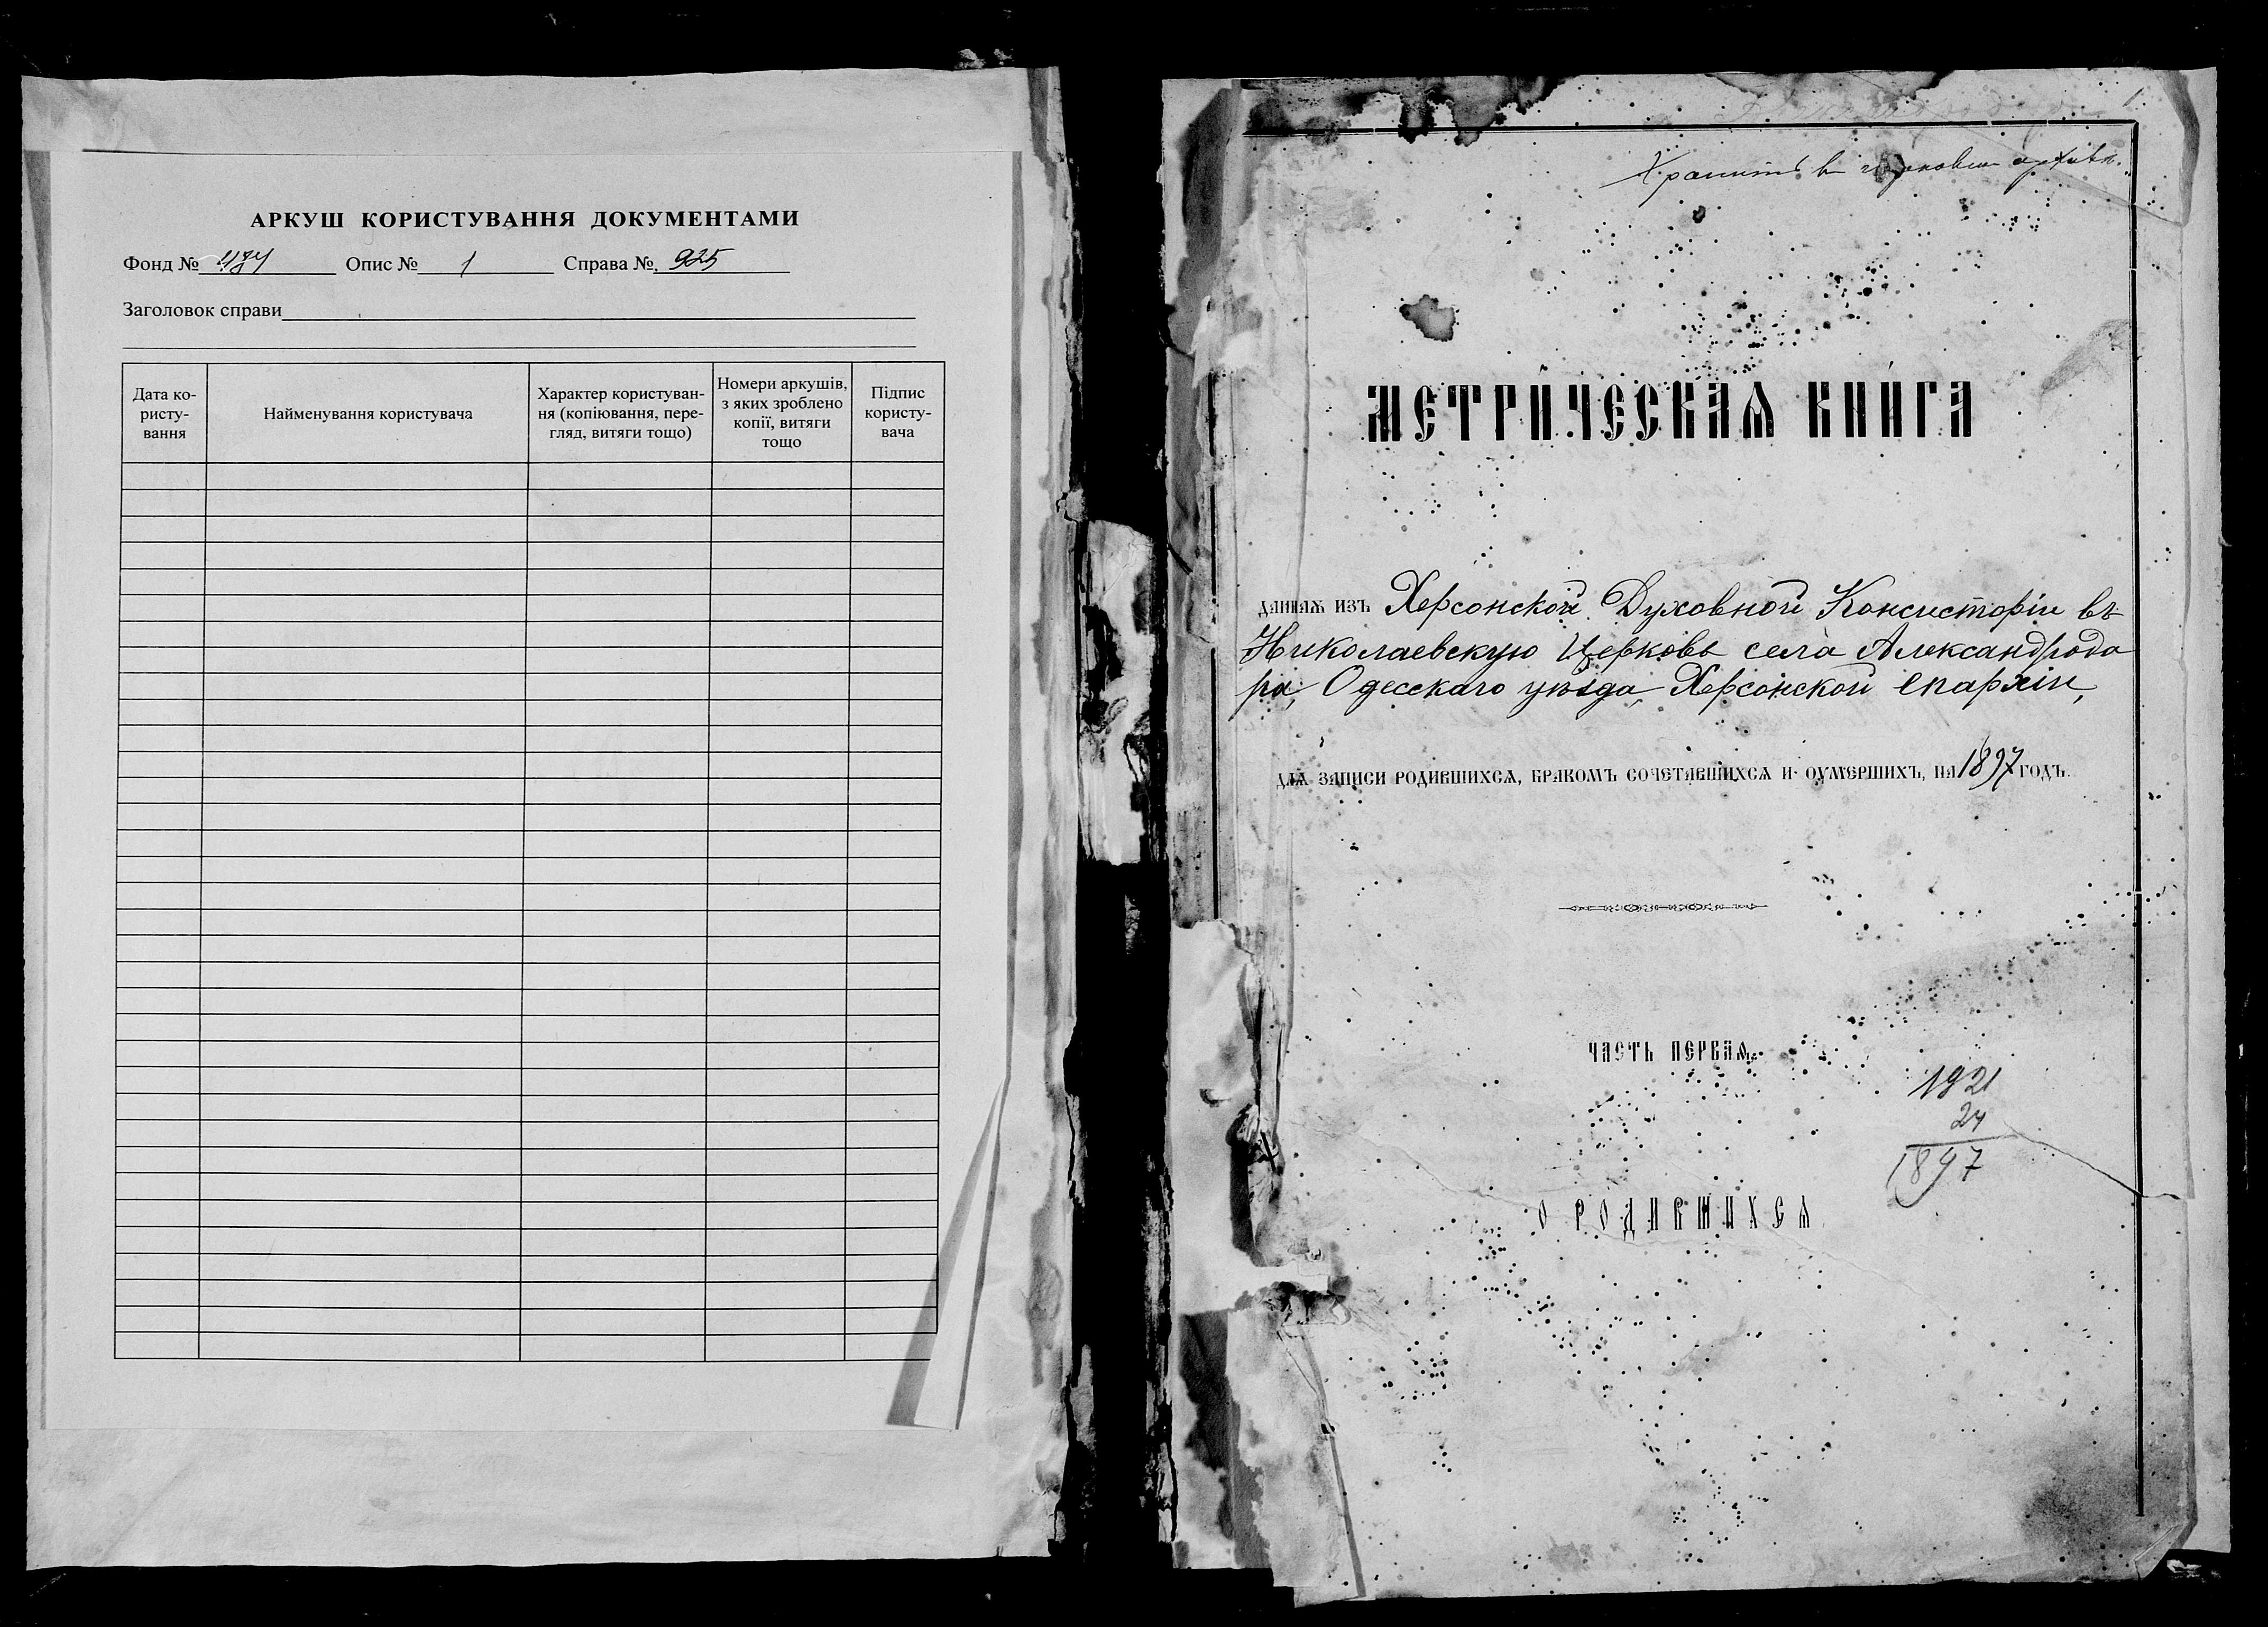 АРКУШ КОРИСТУВАННЯ ДОКУМЕНТАМИ
Фонд № Опис № 1 Справа № 925
Заголовок справи
Дата ко-
ристу-
вання
Найменування користувача
Характер користуван-
ня (копіювання, пере-
гляд, витяги тощо)
Номери аркушів,
з яких зроблено
копії, витяги
тощо
Підпис
користу-
вача
1
Хранить в архив.
МЕТРИ́ЧЕСКАѦ КНИ́ГА
ДАННАѦ ИЗЪ Херсонской Духовной Консисторіи въ
Николаевскую Церковь села Александрода
ра, Одесскаго уѣзда, Херсонской епархіи,
ДЛѦ ЗАПИСИ РОДИВШИХСѦ, БРАКОМЪ СОЧЕТАВШИХСѦ И ОУМЕРШИХЪ, НА 1897 ГОДЪ.
ЧАСТЬ ПЕРВАѦ.
1921
24
1897
О РОДИВШИХСѦ